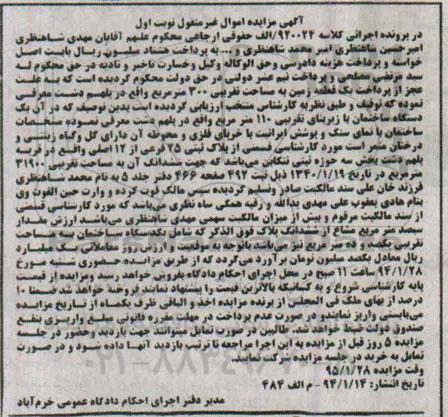 آگهی مزایده اموال غیرمنقول نوبت اول
در پرونده اجرائی کلاسه ۹۲۰۰۲۴/الف حقوقی ارجاعی محکوم علیهم آقایان مهدی شاهنظری
امیرحسین شاهنظری امیر محمد شاهنظری و... به پرداخت هشتاد میلیون ریال بابت اصل
خواسته و پرداخت هزینه دادرسی وحق الوکاله وکیل وخسارت تاخیر و تادیه در حق محکوم له
سید مرتضی مصلحی و پرداخت نیم عشر دولتی در حق دولت محکوم گردیده است که بنا علت
عجز از پرداخت یک قطعه زمین به مساحت تقریبی ۳۰۰ مترمربع واقع در پلهم دشت معرفی
نموده که توقیف و طبق نظریه کارشناس منتخب ارزیابی گردیده است بدین توصیف که در آن یک
دستگاه ساختمان با زیربنای تقریبی ۱۱۰ متر مربع واقع در پلهم دشت معرفی نموده مشخصات
ساختمان با نمای سنگ و پوشش ایرانیت با خرپای فلزی و محوطه آن دارای گل وگیاه زینتی و
درختان مثمر است مورد کارشناسی قسمتی از پلاک ثبتی ۷۵ فرعی از ۱۲ اصلی واقع در قریه
پلهم دشت بخش سه حوزه ثبتی تنکابن می‌باشد که جهت ششدانگ آن به مساحت تقریبی ۳۱۹۰۰
مترمربع در تاریخ ۱۳۴۰/۱/۱۹ ذیل ثبت ۴۹۲ صفحه ۴۶۶ دفتر جلد ۵ به نام محمد شاهنظری
فرزند خان علی سند مالکیت صادر وتسلیم گردیده سپس مالک فوت کرده و وارث حین الفوت وی
بنام هادی یعقوب علی مهدی یدالله و رقیه همگی شاه نظری می‌باشد که مورد کارشناسی قسمتی
از سند مالکیت مرقوم و بیش از میزان مالکیت سهمی مهدی شاهنظری می‌باشد ارزش مقدار
سیصد متر مربع مشاع از ششدانگ پلاک فوق الذکر که شامل یکدستگاه ساختمان به مساحت
تقریبی یکصد و ده متر مربع نیز می‌باشد باتوجه به موقعیت از ارزش معاملاتی یک میلیارد
ریال معادل یکصد میلیون تومان برآورد می‌گردد که از طریق مزایده حضوری شنبه مورخ
۹۴/۱/۲۸ ساعت ۱۱ صبح در محل اجرای احکام دادگاه بفروش خواهد رسید ومزایده از قیمت
پایه کارشناسی شروع و به کسانیکه بالاترین قیمت را پیشنهاد نمایند فروخته خواهد شد ضمنا ۱۰
درصد از بهای ملک فی المجلس از برنده مزایده اخذ و الباقی ظرف یکماه از تاریخ مزایده
می‌بایستی واریز نمایندو در صورت عدم پرداخت در مهلت مقرره قانونی مبلغ واریزی بنفع
صندوق دولت ضبط خواهد شد. طالبین در صورت تمایل میتوانند جهت بازدید وحضور در جلسه
مزایده ۵ روز قبل از مزایده به این اجرا مراجعه تا ترتیب بازدید آنها داده شود و در صورت
تمایل به خرید در جلسه مزایده شرکت نمایید.
وقت مزایده ۹۵/۱/۲۸
تاریخ انتشار: ۹۴/۱/۱۴ - م الف ۴۸۴
مدیر دفتر اجرای احکام دادگاه عمومی خرم‌آباد